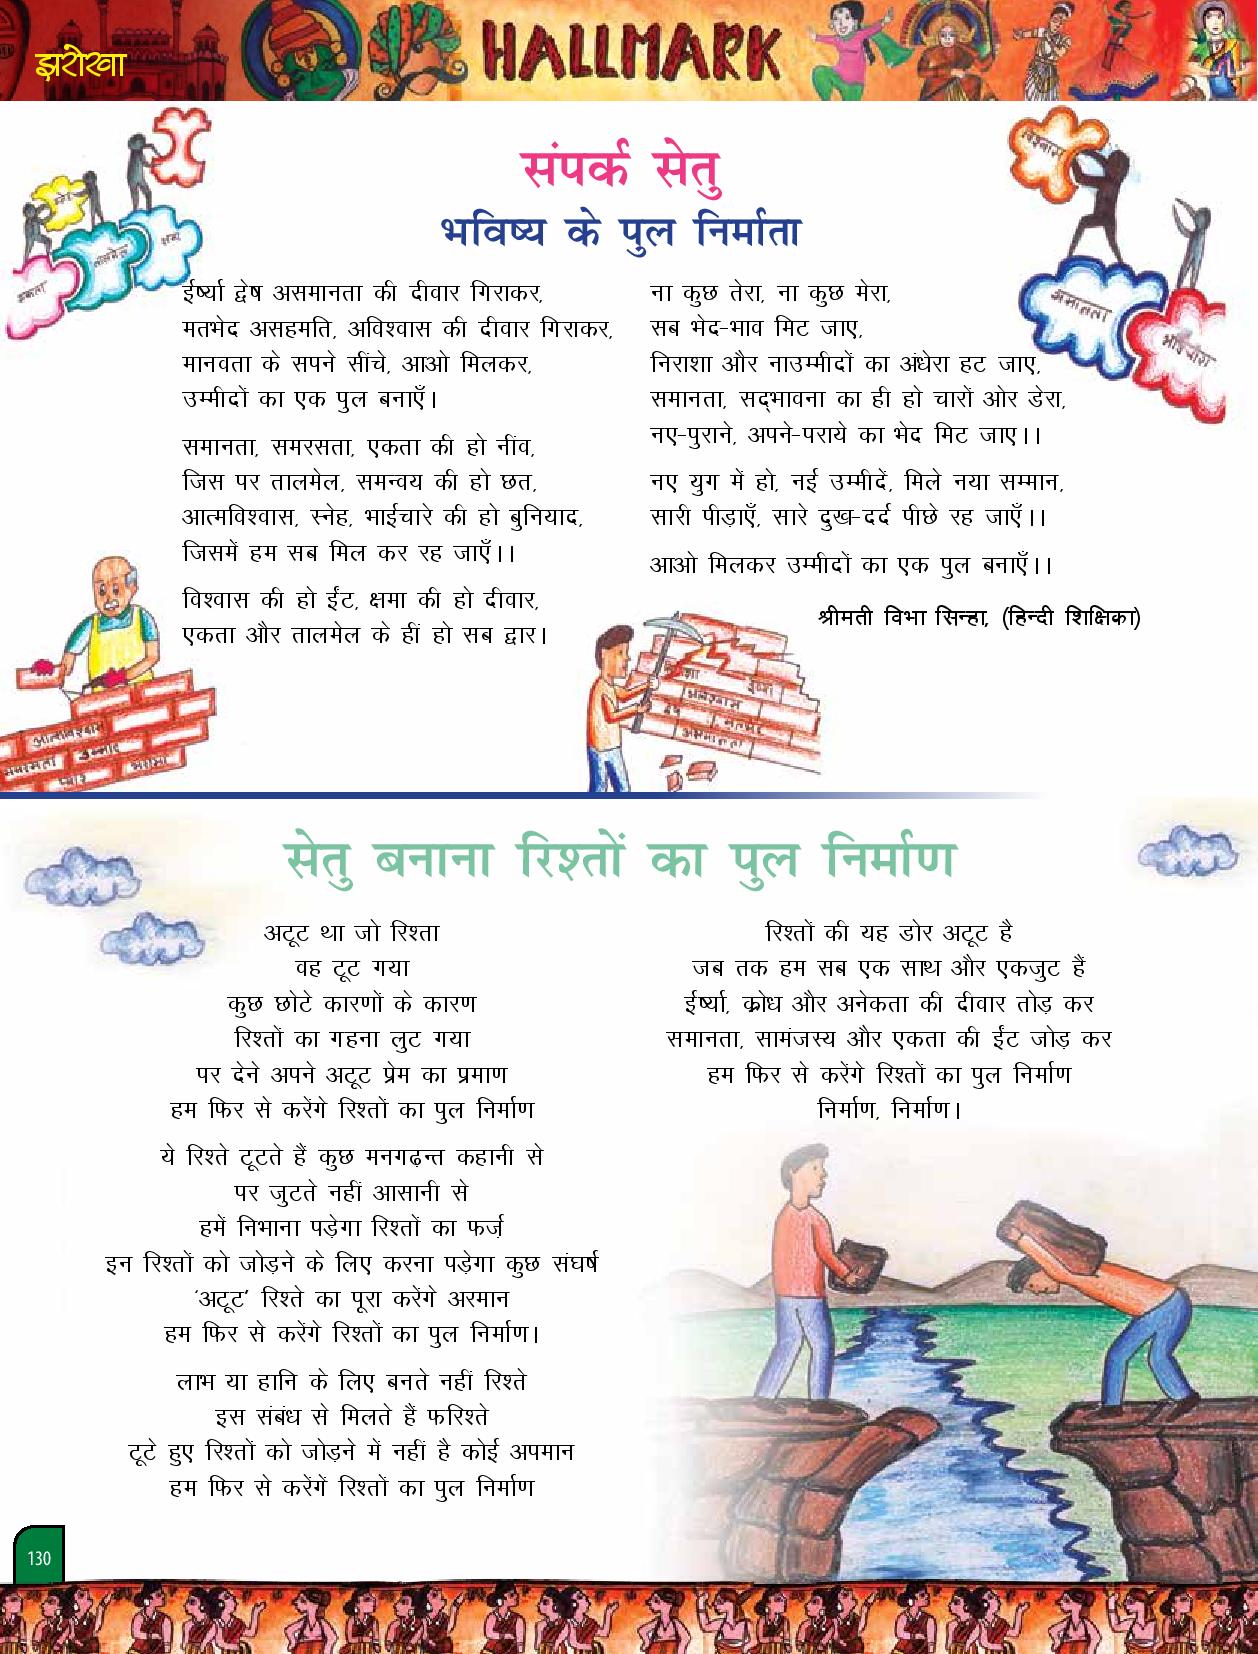 झरोखा
HALLMARK
संपर्क सेतु
भविष्य के पुल निर्माता
विश्वास
तालमेल
क्षमा
एकता
समानता
भाईचारा
ईर्ष्या द्वेष असमानता की दीवार गिराकर,
मतभेद असहमति, अविश्वास की दीवार गिराकर,
मानवता के सपने सींचे, आओ मिलकर,
उम्मीदों का एक पुल बनाएँ।
समानता, समरसता, एकता की हो नींव,
जिस पर तालमेल, समन्वय की हो छत,
आत्मविश्वास, स्नेह, भाईचारे की हो बुनियाद,
जिसमें हम सब मिल कर रह जाएँ।।
विश्वास की हो ईंट, क्षमा की हो दीवार,
एकता और तालमेल के हीं हो सब द्वार।
ना कुछ तेरा, ना कुछ मेरा,
सब भेद-भाव मिट जाए,
निराशा और नाउम्मीदों का अंधेरा हट जाए,
समानता, सद्‌भावना का ही हो चारों ओर डेरा,
नए-पुराने, अपने-पराये का भेद मिट जाए।।
नए युग में हो, नई उम्मीदें, मिले नया सम्मान,
सारी पीड़ाएँ, सारे दुख-दर्द पीछे रह जाएँ।।
आओ मिलकर उम्मीदों का एक पुल बनाएँ।।
श्रीमती विभा सिन्हा, (हिन्दी शिक्षिका)
सेतु बनाना रिश्तों का पुल निर्माण
अटूट था जो रिश्ता
वह टूट गया
कुछ छोटे कारणों के कारण
रिश्तों का गहना लुट गया
पर देने अपने अटूट प्रेम का प्रमाण
हम फिर से करेंगे रिश्तों का पुल निर्माण
ये रिश्ते टूटते हैं कुछ मनगढ़न्त कहानी से
पर जुटते नहीं आसानी से
हमें निभाना पड़ेगा रिश्तों का फर्ज़
इन रिश्तों को जोड़ने के लिए करना पड़ेगा कुछ संघर्ष
'अटूट' रिश्ते का पूरा करेंगे अरमान
हम फिर से करेंगे रिश्तों का पुल निर्माण।
लाभ या हानि के लिए बनते नहीं रिश्ते
इस संबंध से मिलते हैं फरिश्ते
टूटे हुए रिश्तों को जोड़ने में नहीं है कोई अपमान
हम फिर से करेंगें रिश्तों का पुल निर्माण
रिश्तों की यह डोर अटूट है
जब तक हम सब एक साथ और एकजुट हैं
ईर्ष्या, क्रोध और अनेकता की दीवार तोड़ कर
समानता, सामंजस्य और एकता की ईंट जोड़ कर
हम फिर से करेंगे रिश्तों का पुल निर्माण
निर्माण, निर्माण।
130